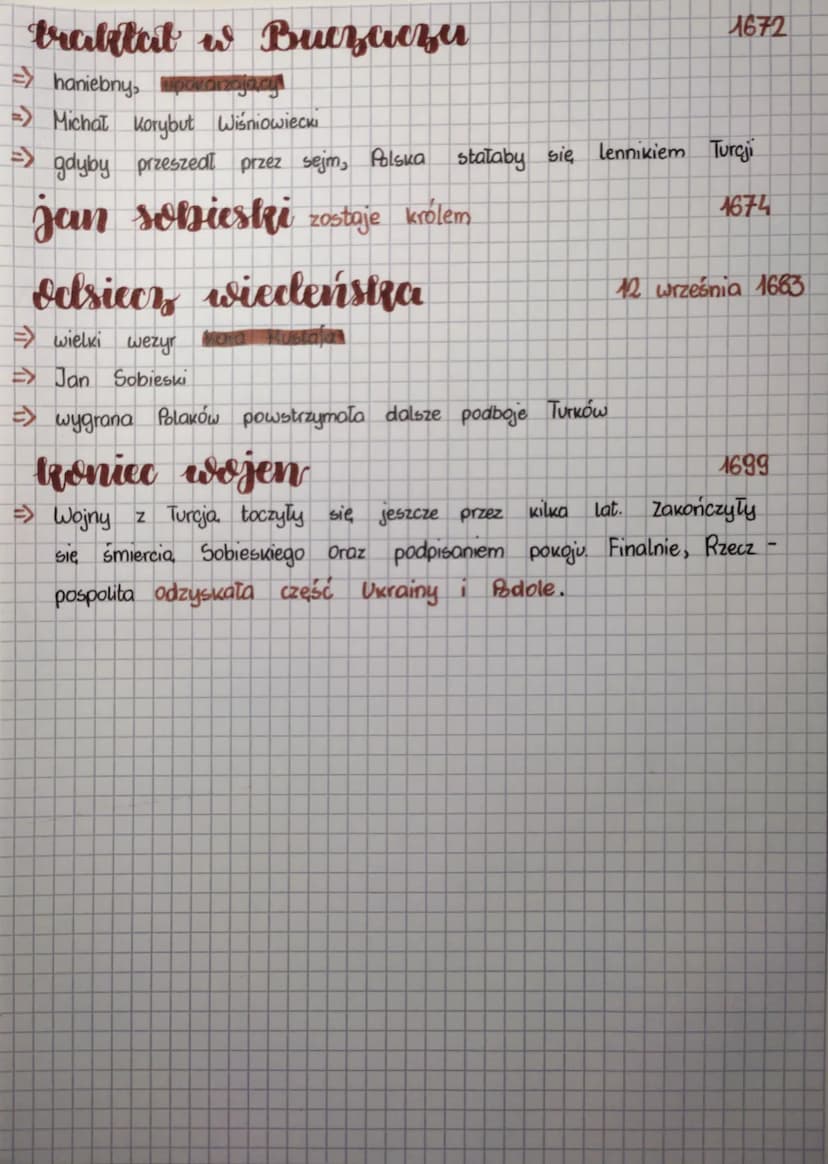 traktat w Buczaczu 1672
=> haniebny, upokarzający
=> Michał Korybut Wiśniowiecki
=> gdyby przeszedł przez sejm, Polska stałaby się lennikiem Turcji
jan sobieski zostaje królem 1674
Odsiecz wiedeńska 12 września 1683
=> wielki wezyr Kara Mustafa
=> Jan Sobieski
=> wygrana Polaków powstrzymała dalsze podboje Turków
koniec wojen 1699
=> Wojny z Turcją toczyły się jeszcze przez kilka lat. Zakończyły
się śmiercią Sobieskiego oraz podpisaniem pokoju. Finalnie, Rzecz -
pospolita odzyskała część Ukrainy i Podole.